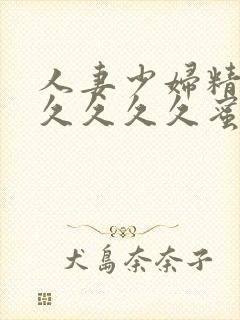 人妻少婦精
久久久久蜜
犬島奈奈子